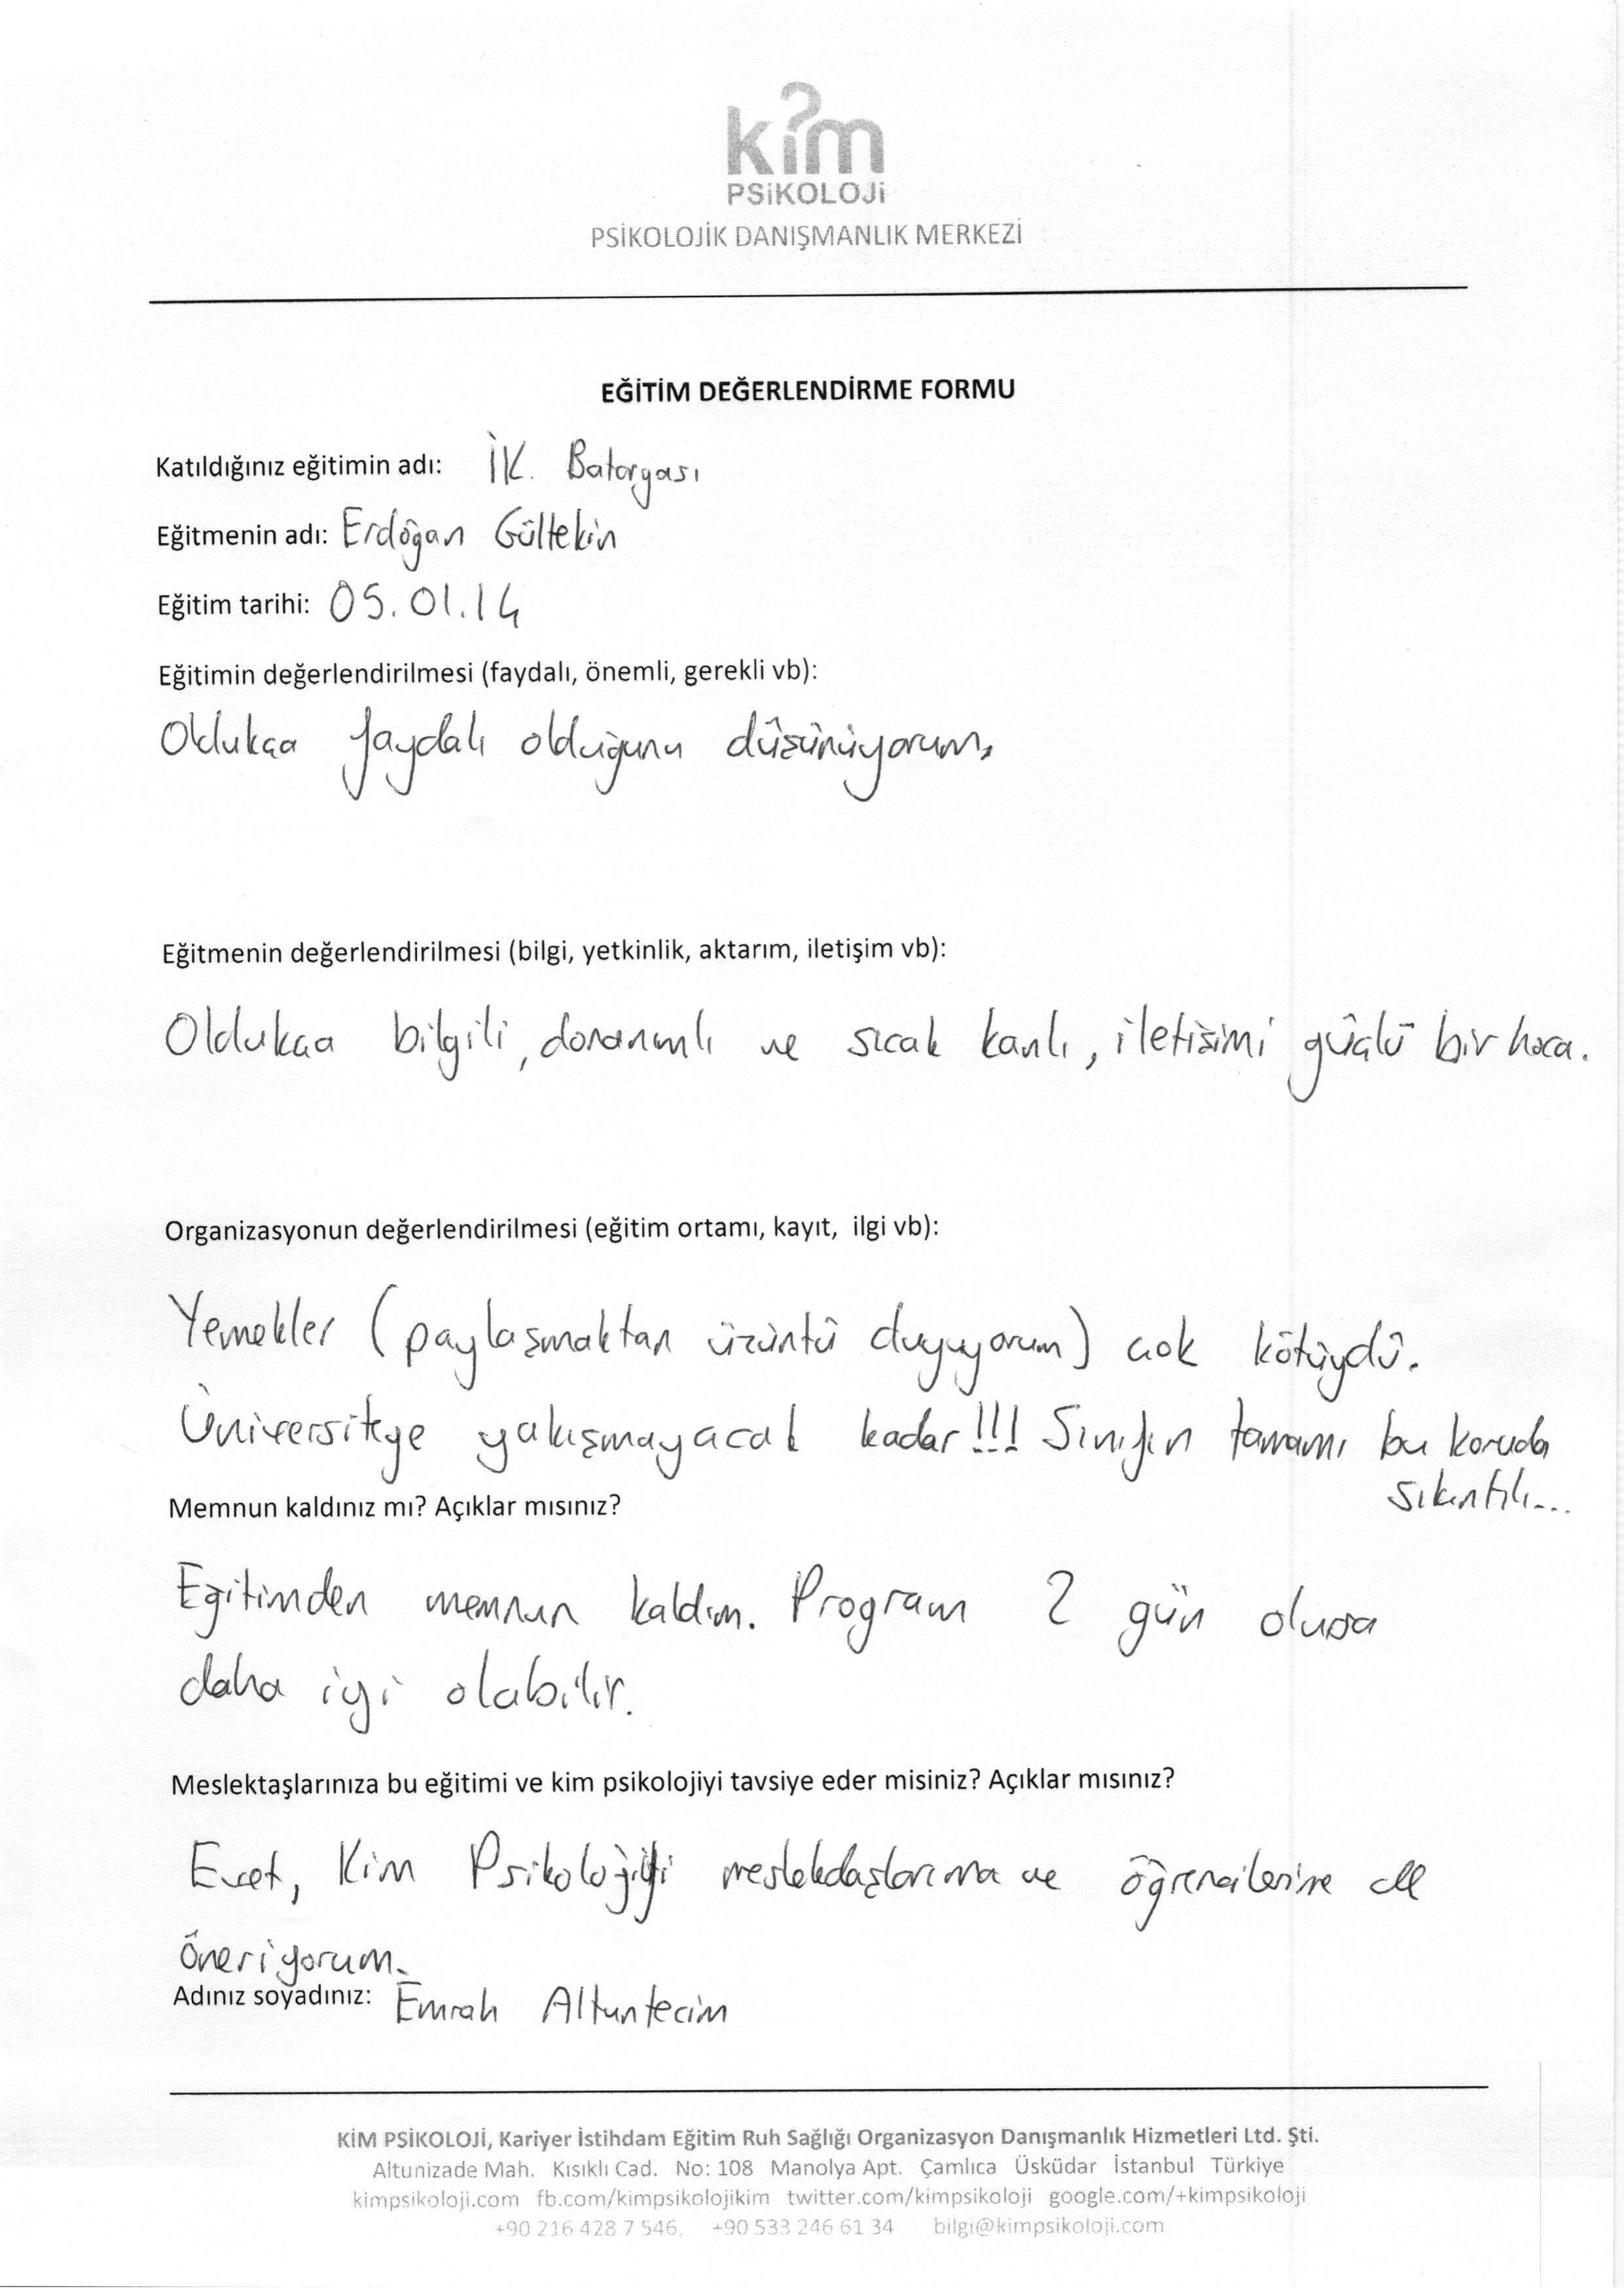 kim
PSiKOLOJi
PSİKOLOJİK DANIŞMANLIK MERKEZİ
EĞİTİM DEĞERLENDİRME FORMU
Katıldığınız eğitimin adı: İK. Bataryası
Eğitmenin adı: Erdoğan Gültekin
Eğitim tarihi: 05.01.14
Eğitimin değerlendirilmesi (faydalı, önemli, gerekli vb):
Oldukça faydalı olduğunu düşünüyorum.
Eğitmenin değerlendirilmesi (bilgi, yetkinlik, aktarım, iletişim vb):
Oldukça bilgili, donanımlı ve sıcak kanlı, iletişimi güçlü bir hoca.
Organizasyonun değerlendirilmesi (eğitim ortamı, kayıt, ilgi vb):
Yemekler (paylaşmaktan üzüntü duyuyorum) çok kötüydü.
Üniversiteye yakışmayacak kadar!!! Sınıfın tamamı bu konuda
sıkıntılı...
Memnun kaldınız mı? Açıklar mısınız?
Eğitimden memnun kaldım. Program 2 gün olursa
daha iyi olabilir.
Meslektaşlarınıza bu eğitimi ve kim psikolojiyi tavsiye eder misiniz? Açıklar mısınız?
Evet, Kim Psikolojiyi meslekdaşlarıma ve öğrencilerime
öneriyorum.
Adınız soyadınız: Emrah Altuntecim
KİM PSİKOLOJİ, Kariyer İstihdam Eğitim Ruh Sağlığı Organizasyon Danışmanlık Hizmetleri Ltd. Şti.
Altunizade Mah. Kısıklı Cad. No: 108 Manolya Apt. Çamlıca Üsküdar İstanbul Türkiye
kimpsikoloji.com fb.com/kimpsikolojikim twitter.com/kimpsikoloji google.com/+kimpsikoloji
+90 216 428 7 546, +90 533 246 61 34 bilgi@kimpsikoloji.com